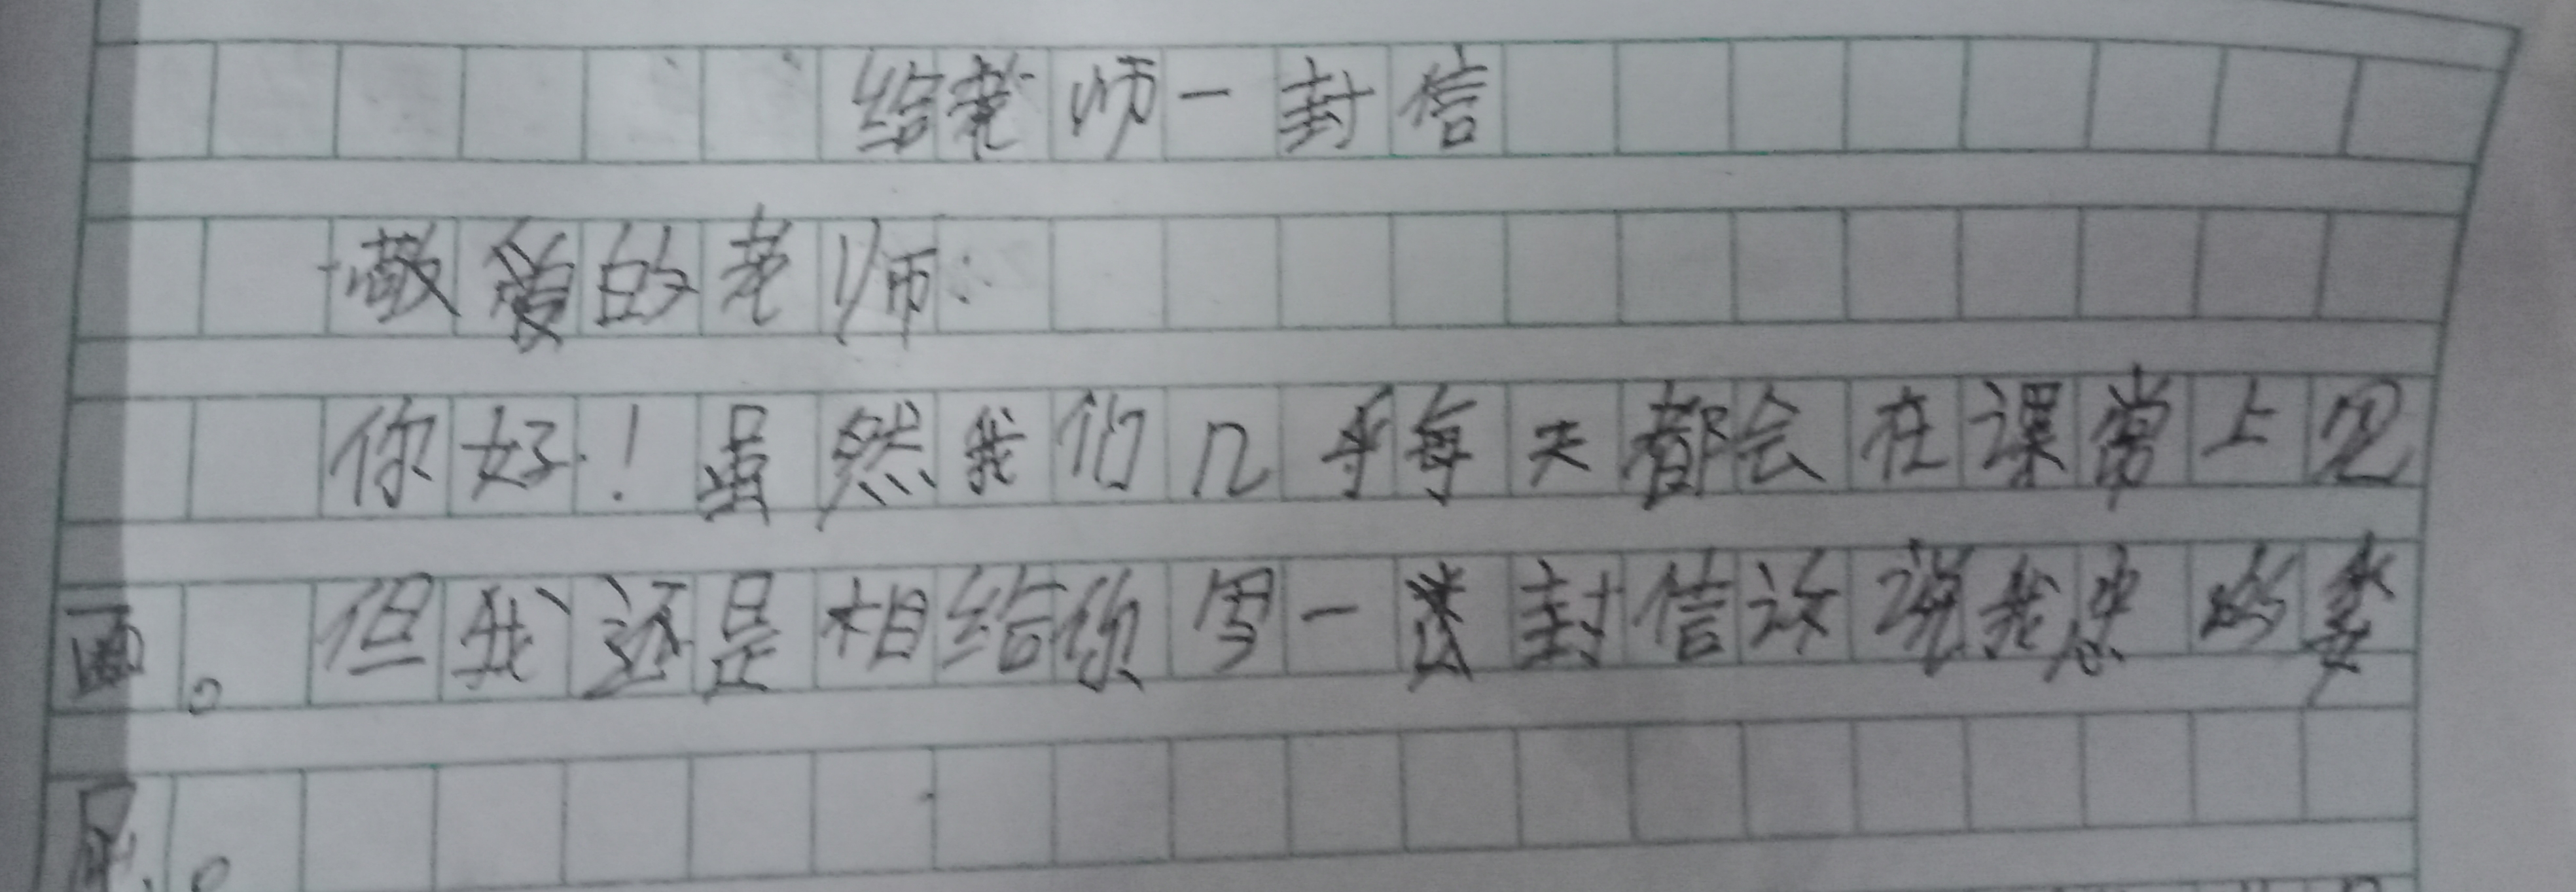 给老师一封信
敬爱的老师:
你好!虽然我们几乎每天都会在课常上见
面。但我还是相给你写一封信诉说我心的委
屈。